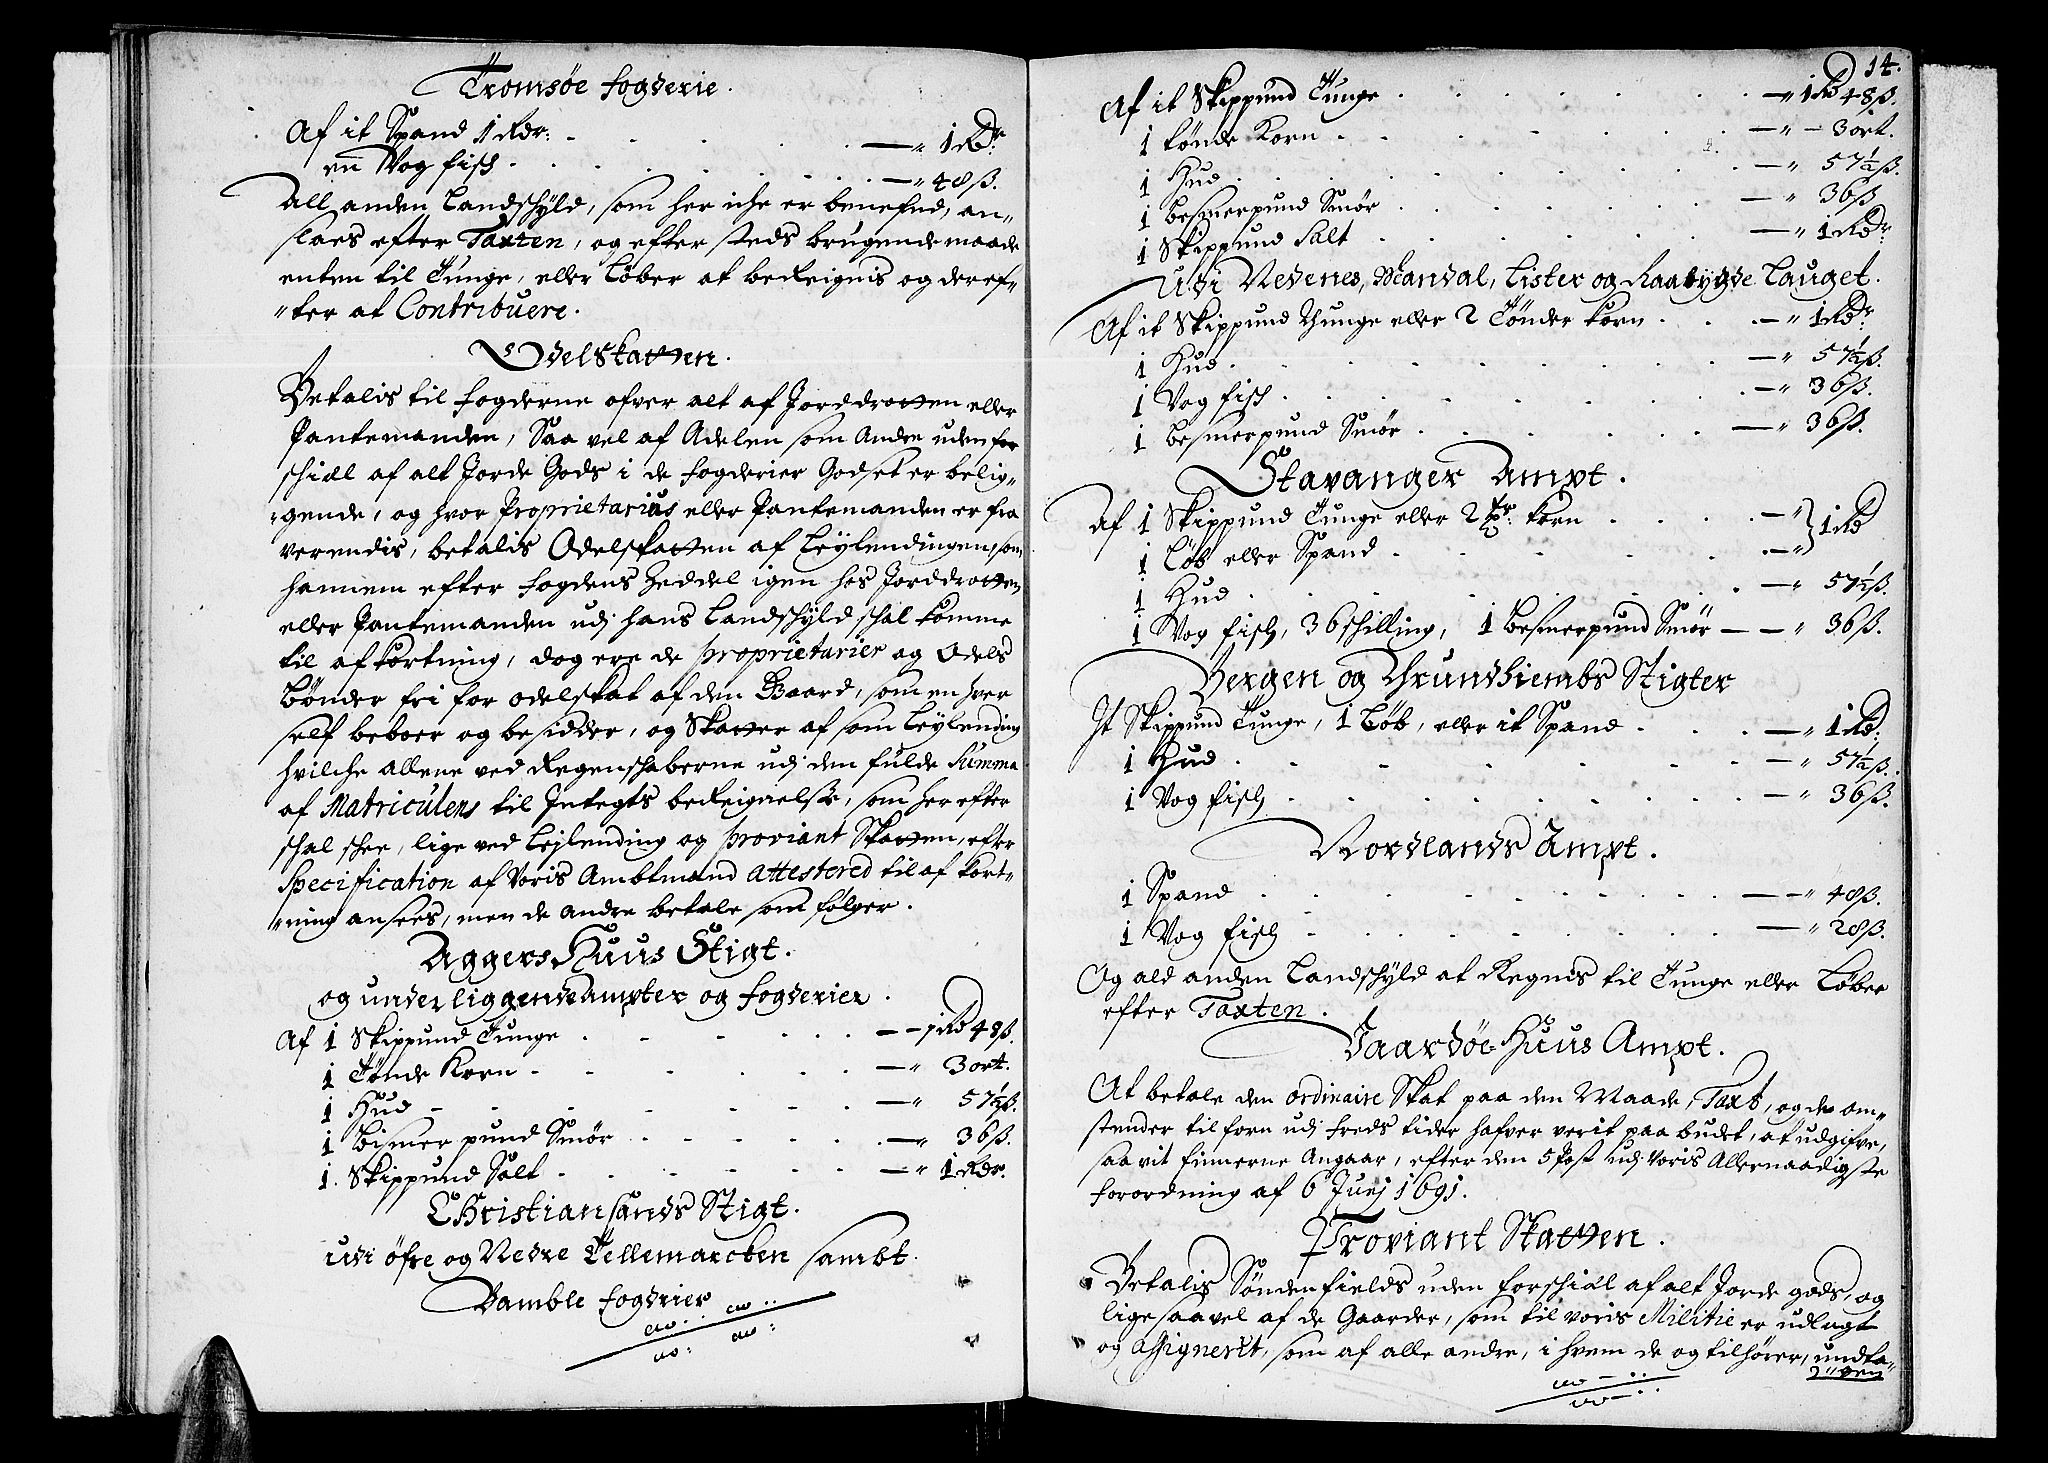 Tromsøe fogderie.
Af it Spand 1 Rdr: — " 1 Rdr:
en Vog fisch — " 48 ß.
All anden Landschyld, som her iche er benefnd, an=
slaes efter Taxten, og efter steds brugende maade
enten til Tunge, eller Løber at beReignis og deref=
=ter at Contribuere.
Odelskatten.
Betalis til fogderne ofver alt af Jorddrotten eller
Pantemanden, Saa vel af Adelen som Andre uden for
schiell af alt Jorde Gods i de fogderier Godset er belig=
=gende, og hvor Proprietarius eller Pantemanden er fra
verendis, betalis Odelskatten af Leylendingen, som
hannem efter fogdens Zeddel igen hos Jorddrotten
eller Pantemanden udj hans Landschyld schal komme
til afkortning, dog ere de proprietarier og Odels
Bønder fri for odelskat af den Gaard, som en hver
self beboer og besidder, og Skatter af som Leylending
hvilche allene ved Regenschaberne udj den fulde Summa
af Matriculens til Jntegts beReignelse, som her efter
schal schee, lige ved Lejlending og proviant Skatten, efter
Specification af Voris Ambtmand attestered til afkort=
=ning ansees, men de andre betale som følger.
AggersHuus Stigt.
og underliggende Ampter og fogderier.
Af 1 Skippund Tunge — — 1 Rd 48 ß.
1 Tønde Korn — " 3 ort.
1 Hud — " 57½ ß.
1 Bismer pund Smør — " 36 ß.
1. Skippund Salt — " 1 Rdr.
Christiansands Stigt.
Udi øfre og Nedre Tellemarcken sambt
Bamble fogdrier
14.
Af it Skippund Tunge — " 1 Rd 48 ß.
1 tønde Korn — " — 3 ort.
1 Hud — " 57½ ß.
1 Besmerpund Smør — " 36 ß
1 Skippund Salt — " 1 Rdr
Udi Nedenes, Mandal, Lister og Raabygde Lauget.
Af it Skippund Thunge eller 2 Tønder korn — " 1 Rdr
1 Hud — " 57½ ß.
1 Vog fisch — " 36 ß.
1 Besmerpund Smør — " 36 ß.
Stavanger Ampt.
Af 1 Skippund Tunge eller 2 tr: korn — " } 1 Rd
1 Løb eller Spand — "
1 Hud — " 57½ ß.
1 Vog fisch, 36 schilling, 1 Besmerpund Smør — — " 36 ß.
Bergen og Thrundhiembs Stigter
It Skippund Tunge, 1 Løb, eller it Spand — " 1 Rd:
1 Hud — " 57½ ß.
1 Vog fisch — " 36 ß.
Nordlands Ampt.
1 Spand — " 48 ß.
1 Vog fisch — " 28 ß.
Og ald anden Landschyld at Regnis til Tunge eller Løber
efter Taxten.
Vaardøe-Huus Ampt.
At betale den ordinaire Skat paa den Maade, Taxt, og de om=
stender til forn udj freds tider hafver verit paa budet, at udgifve,
saa vit finnerne Angaar, efter den 5 Post udj Voris Allernaadigste
forordning af 6 Junj 1691.
Proviant Skatten.
Betalis Søndenfields uden forschiell af alt Jorde gods, og
lige saavel af de Gaarder, som til voris Militie er udlagt
og Assignerit, som af alle andre, i hvem de og tilhører, undta=
=gen